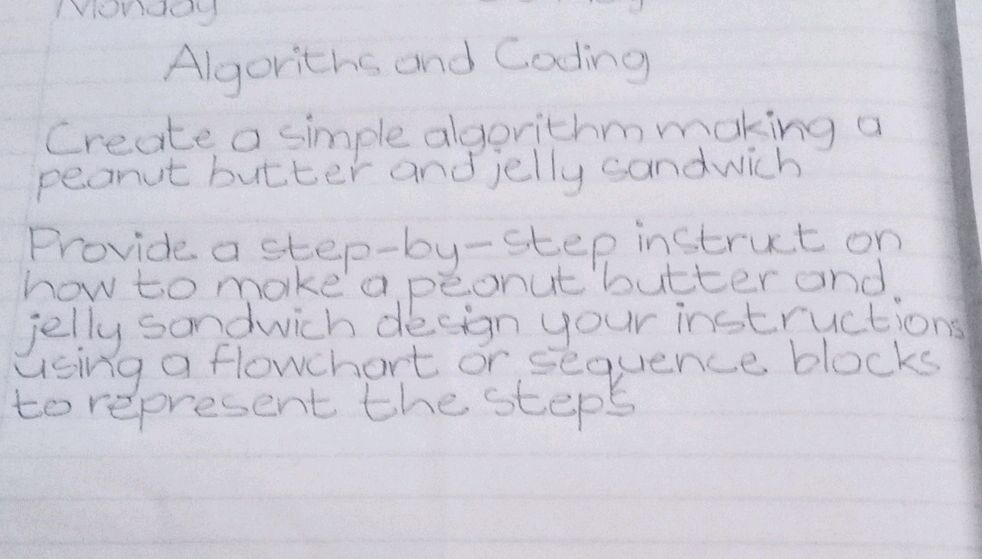 Monday
Algoriths and Coding
Create a simple algorithm making a
peanut butter and jelly sandwich
Provide a step-by-step instruct on
how to make a peanut butter and
jelly sandwich design your instructions
using a flowchart or sequence blocks
to represent the steps